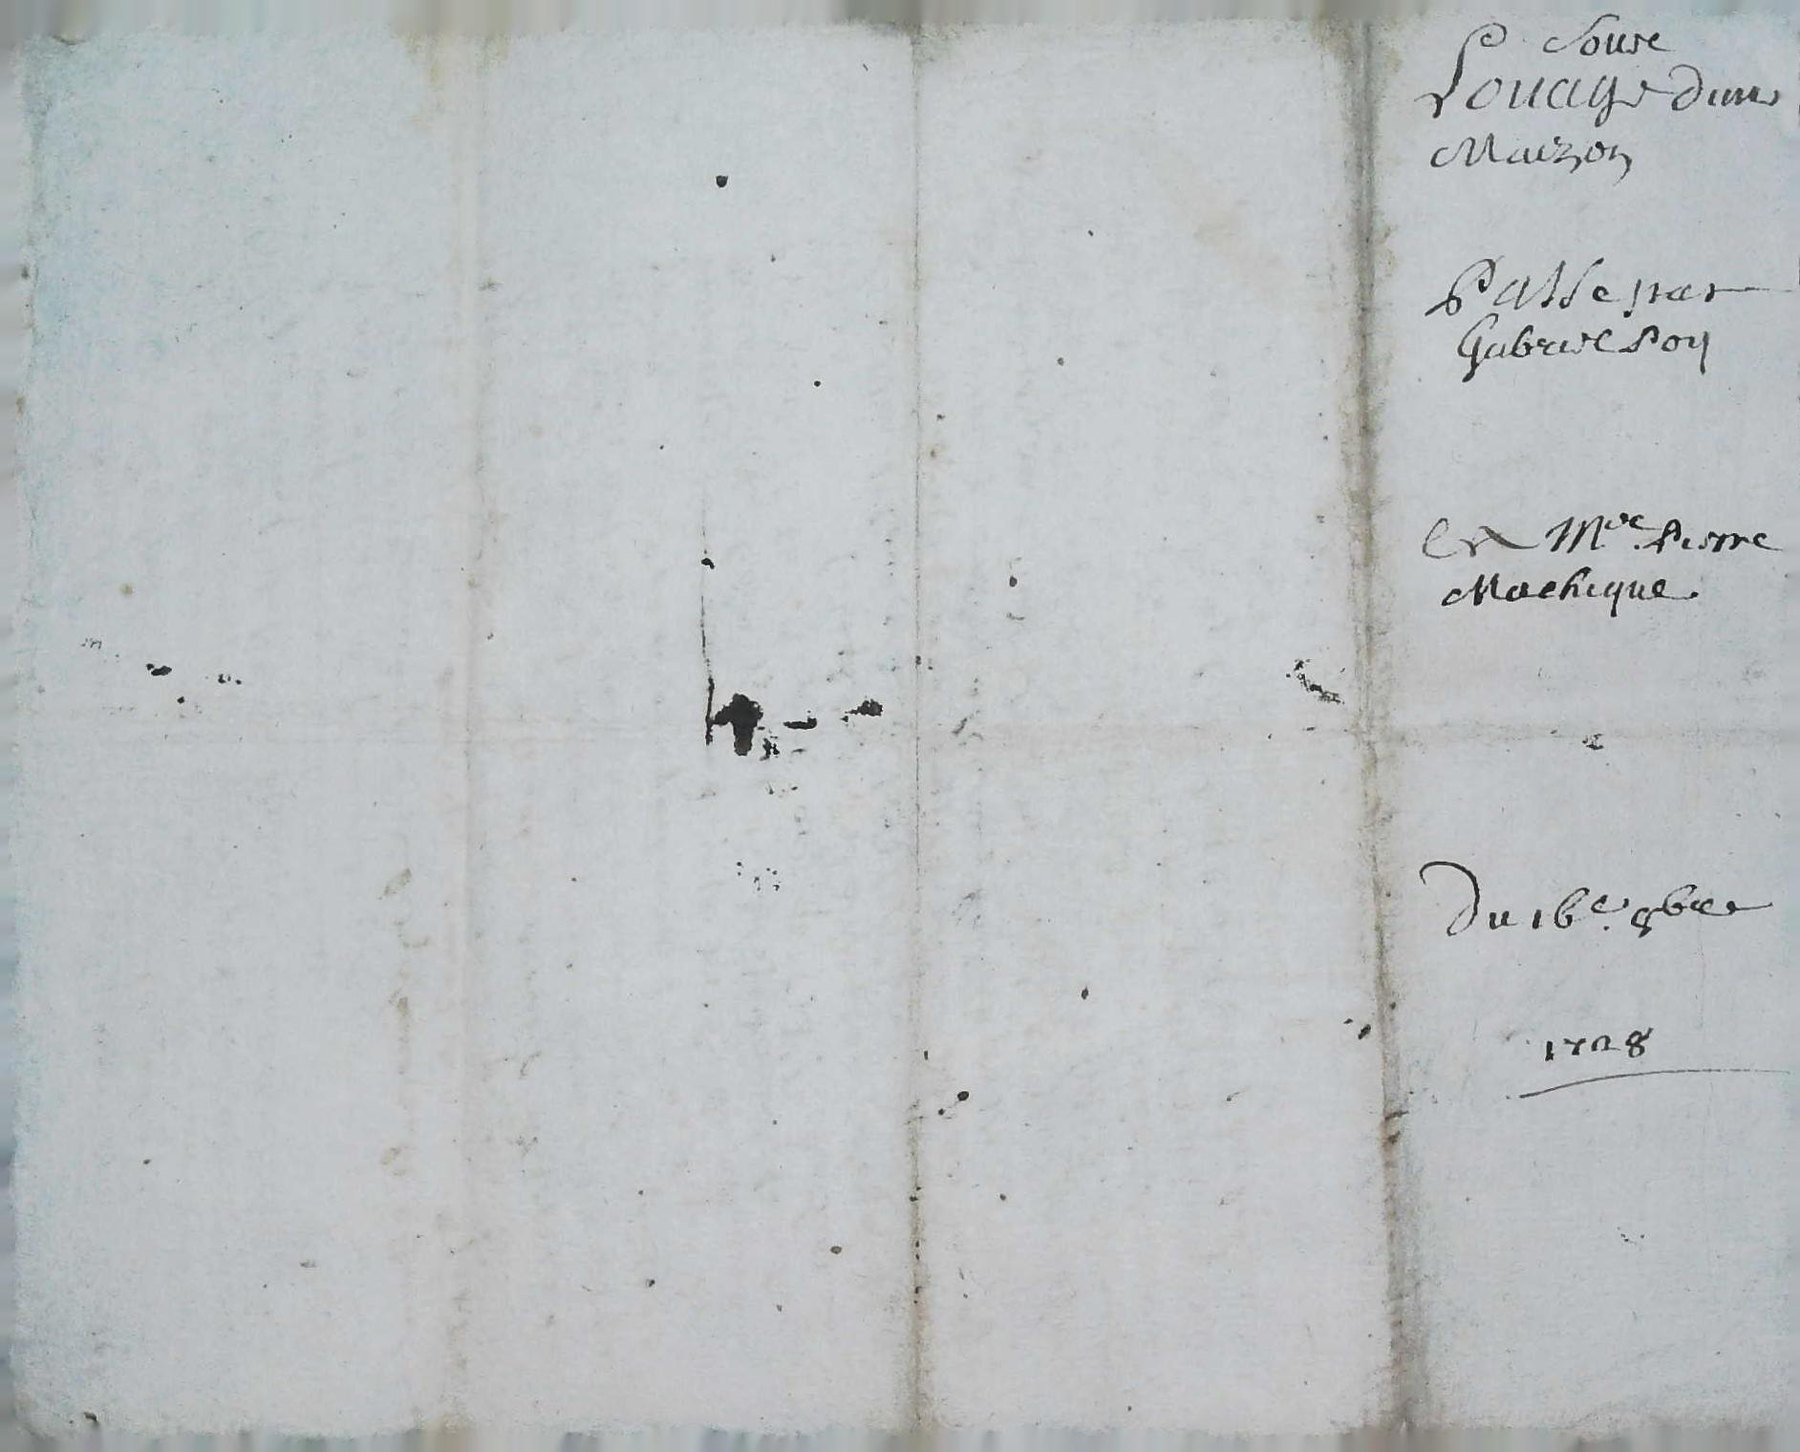 Sous
Louage dune
Maizon
Passe par
Gabriel Roy
Et Mre. Pierre
Machique.
Du 16e. 8bre
1728